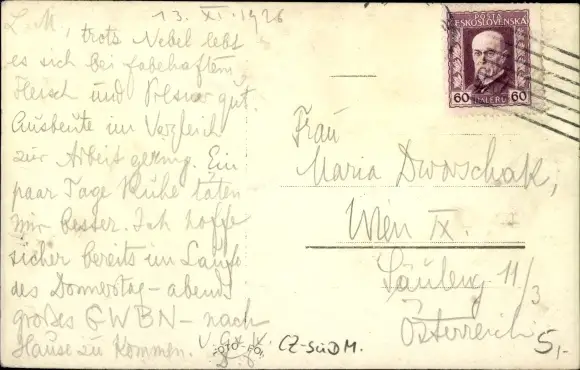 13. XI. 1926
L. M, trotz Nebel lebt
es sich bei fabelhaftem
Fleisch und Pilsner gut.
Ausbeute im Vergleich
zur Arbeit gering. Ein
paar Tage Ruhe täten
mir besser. Ich hoffe
sicher bereits im Laufe
des Donnerstag - abends
großes GWBN - nach
Hause zu kommen.
POŠTA
ČESKOSLOVENSKÁ
60 HALÉŘŮ 60
Frau
Maria Dworschak,
Wien IX.
11/3
Österreich
5,-
CZ-SÜDM.